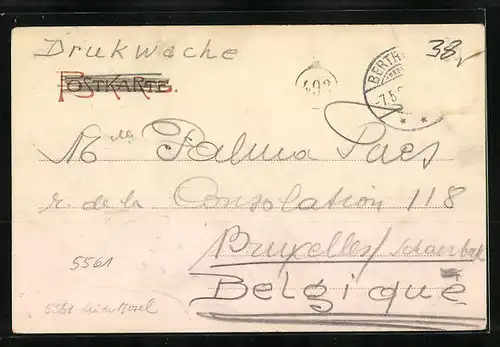 Drukwache 38,
POSTKARTE.
402 BERTR
-7.5.
Mlle Palma Paes
r. de la Consolation 118
Bruxelles/Schaerbeek
5561 Belgique
5561